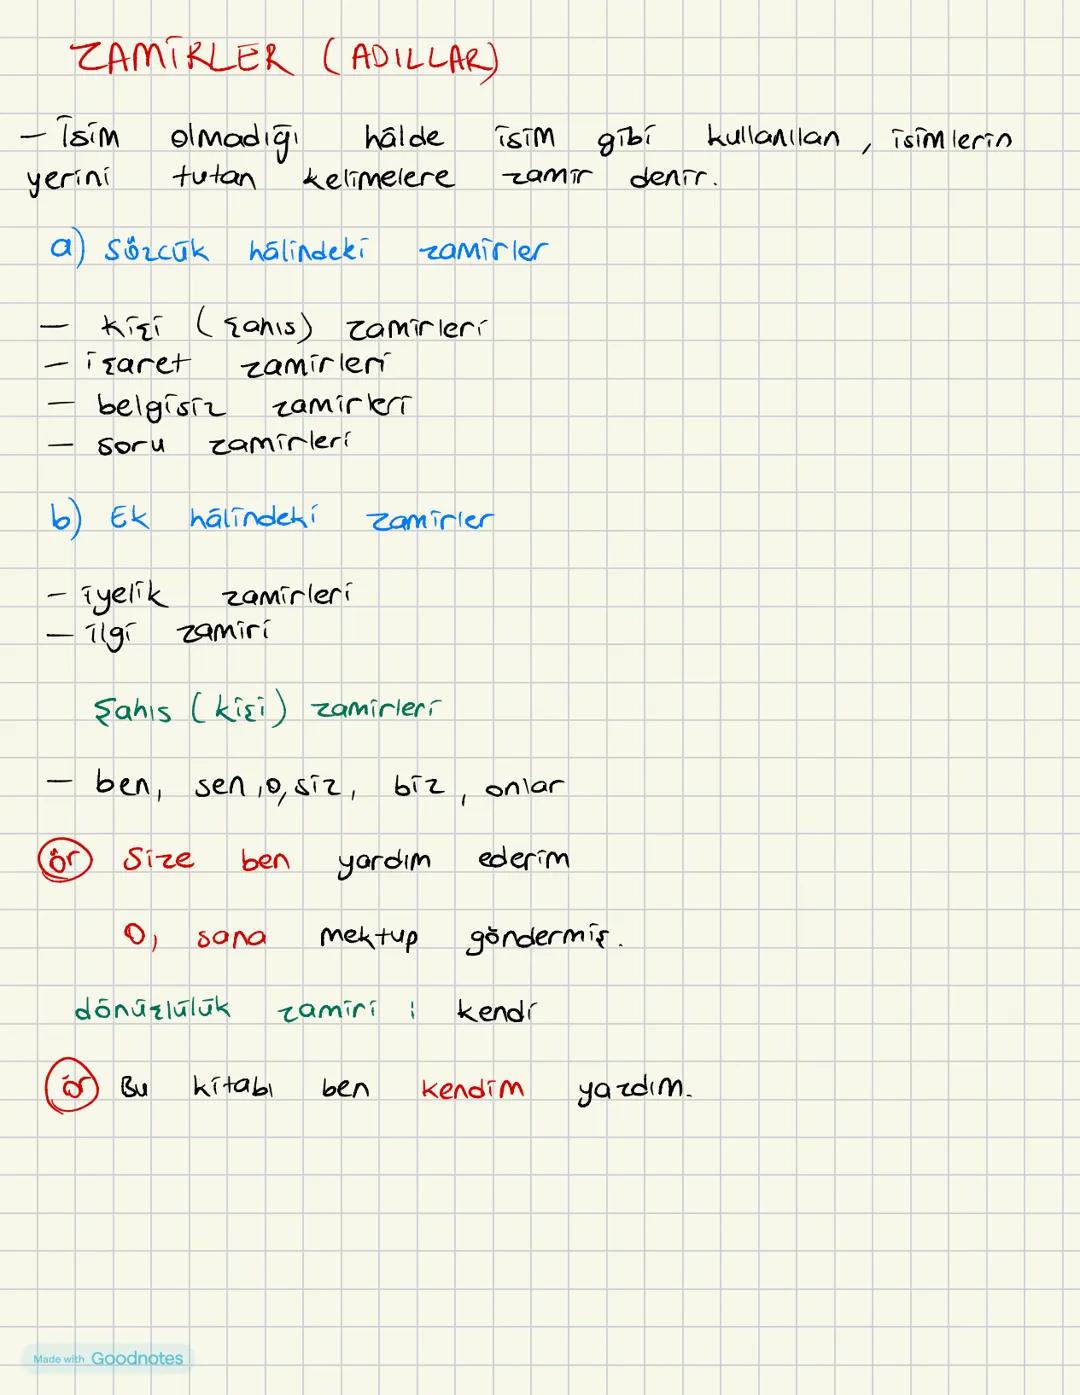 ZAMİRLER (ADILLAR)
- İsim olmadığı hâlde isim gibi kullanılan, isimlerin
yerini tutan kelimelere zamir denir.
a) Sözcük hâlindeki zamirler
- kişi (şahıs) zamirleri
- işaret zamirleri
- belgisiz zamirleri
- soru zamirleri
b) Ek hâlindeki zamirler
- iyelik zamirleri
- ilgi zamiri
Şahıs (kişi) zamirleri
- ben, sen, o, siz, biz, onlar
ör Size ben yardım ederim
O, sana mektup göndermiş.
dönüşlülük zamiri : kendi
ör Bu kitabı ben kendim yazdım.
Made with Goodnotes